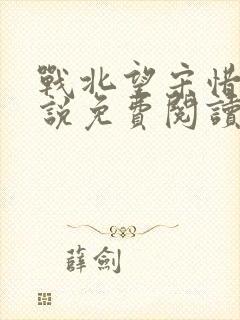 戰北望宋惜
說免費閱讀
薛劍